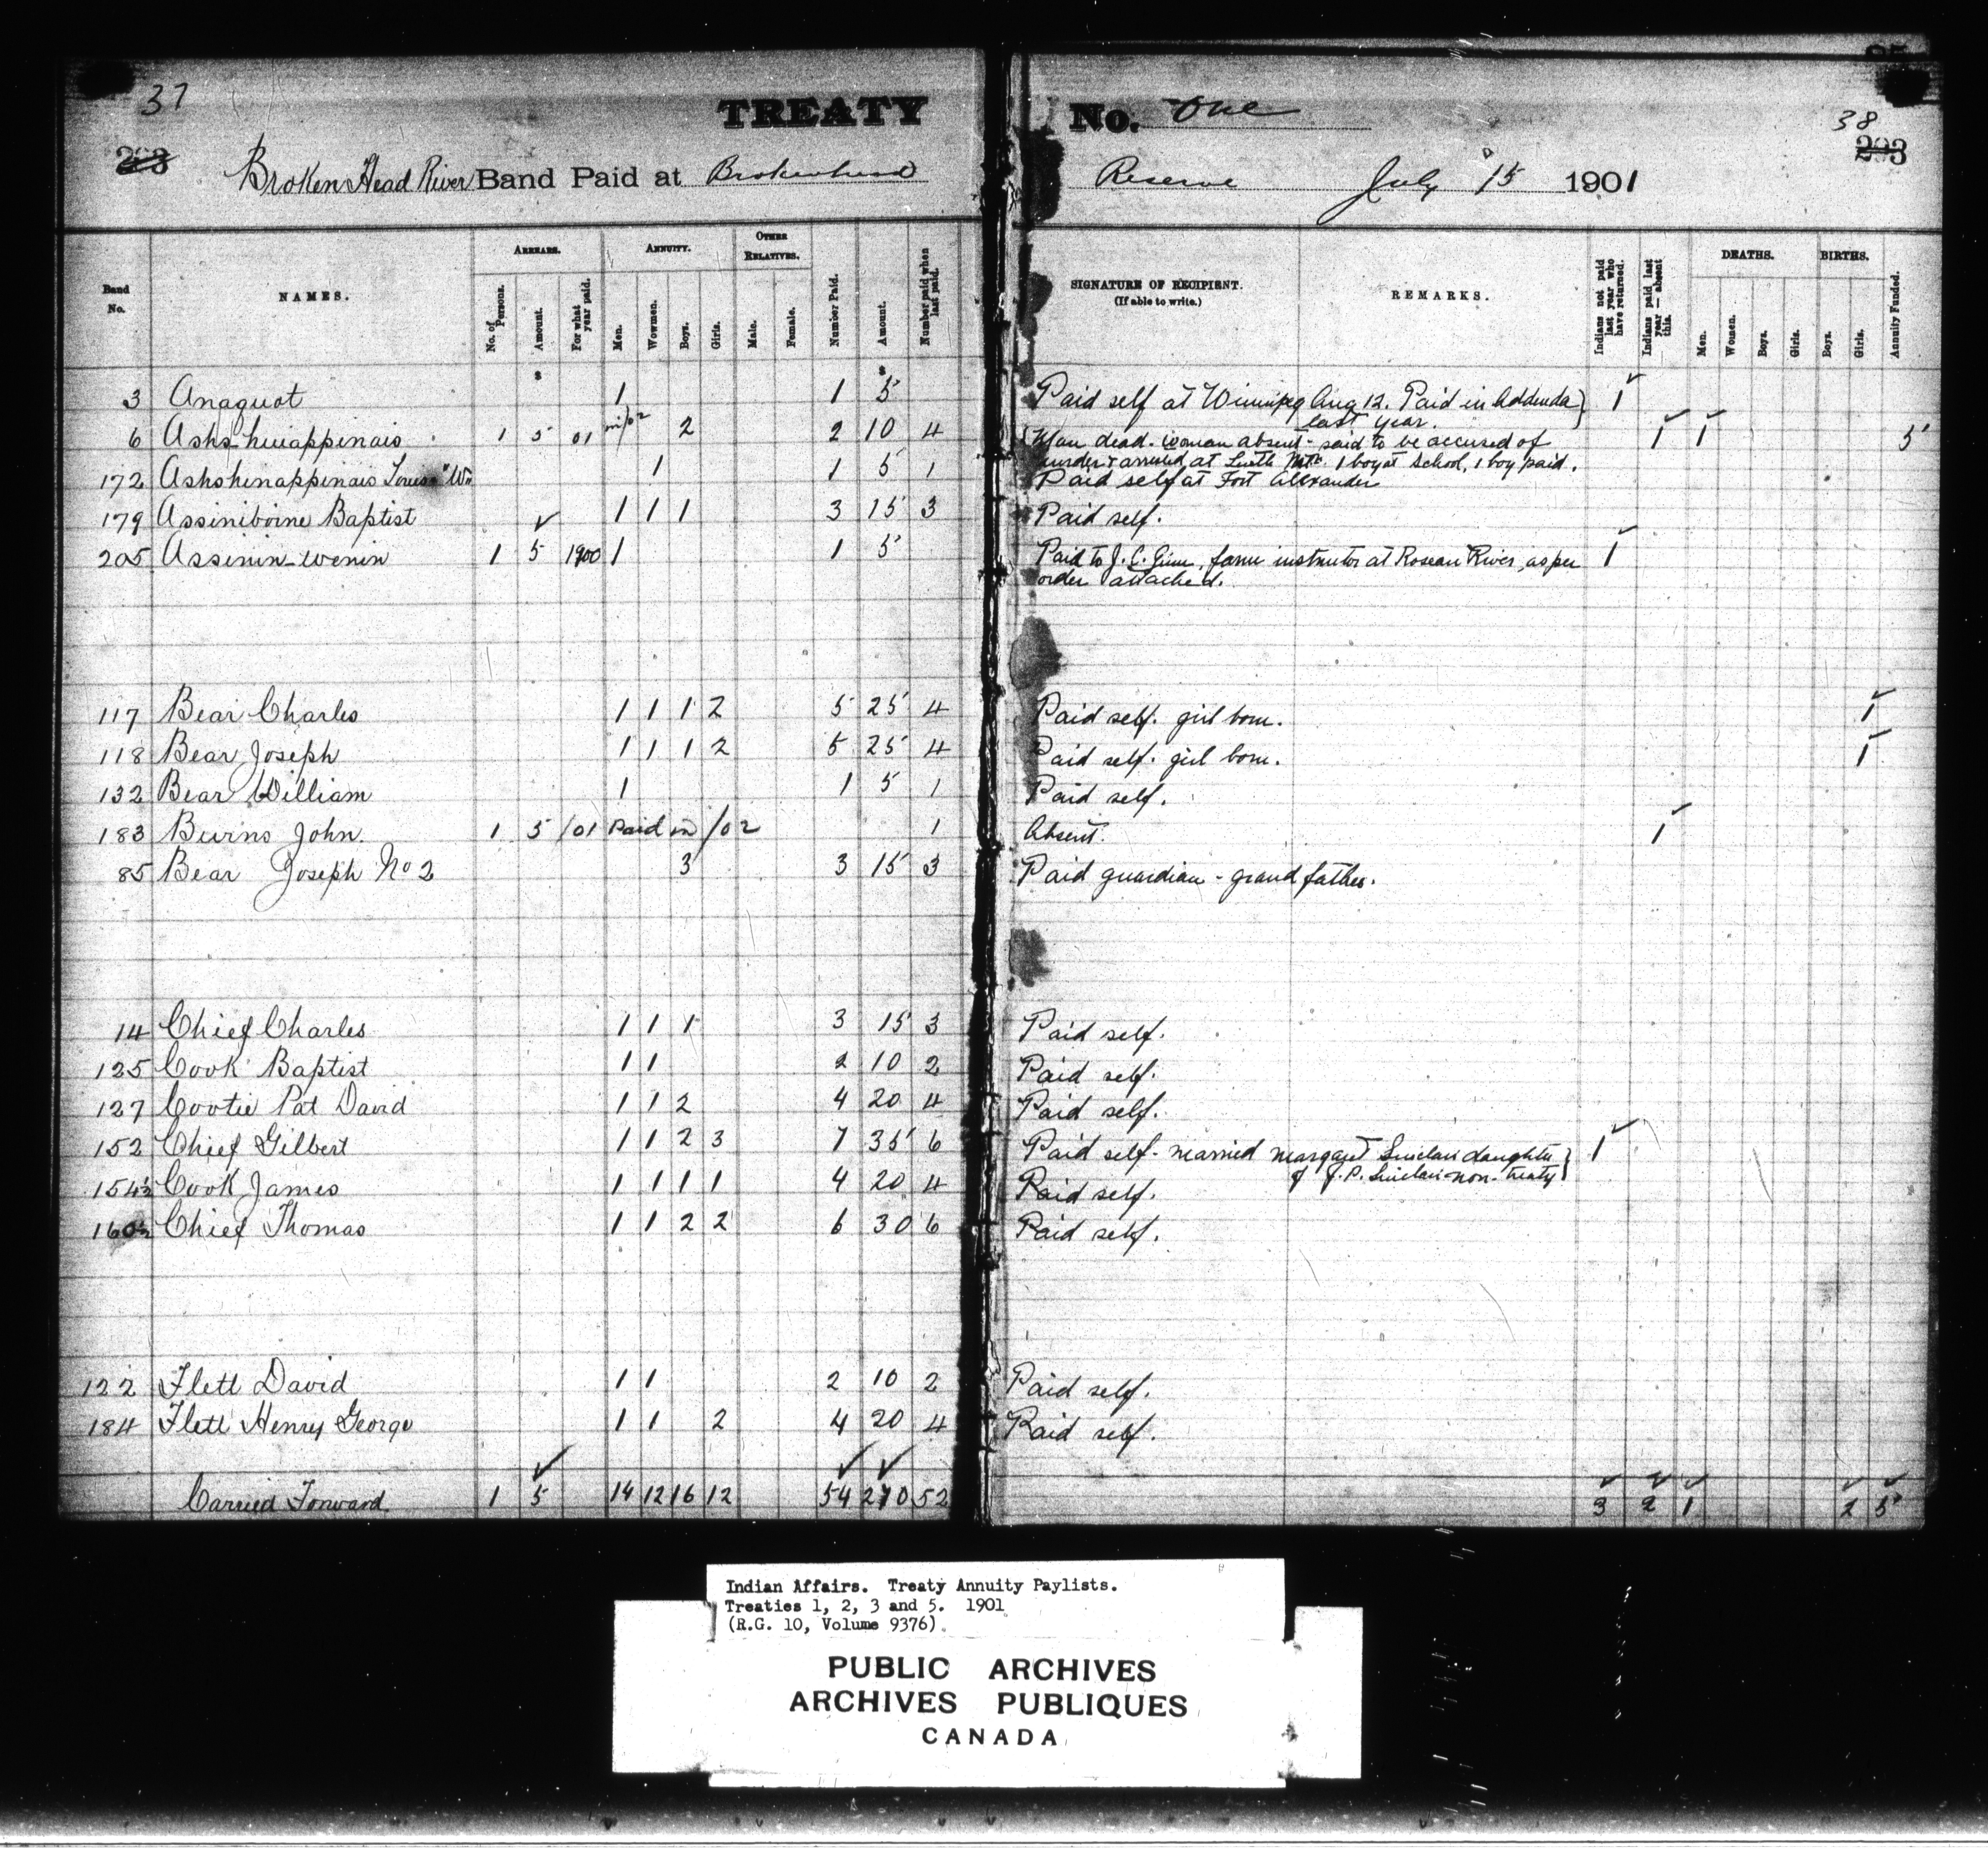 37
TREATY No. One
38
203 Broken Head River Band Paid at Brokenhead Reserve July 15 1901 203
Band No. NAMES. ARREARS. No. of Persons. Amount. For what year paid. ANNUITY. Men. Wowmen. Boys. Girls. OTHER RELATIVES. Male. Female. Number Paid. Amount. Number paid when last paid. SIGNATURE OF RECIPIENT. (If able to write.) REMARKS. Indians not paid last year who have returned. Indians paid last year — absent this. DEATHS. Men. Women. Boys. Girls. BIRTHS. Boys. Girls. Annuity Funded.
$ $
3 Anaquot 1 1 5 Paid self at Winnipeg Aug 12. Paid in Addenda } 1
last year.
6 1 5 01 in/02 2 2 10 4 Man dead - woman absent - said to be accused of 1 1 5
murder & arrested at 1 boy at school, 1 boy paid.
172 1 1 5 1 Paid self at Fort Alexander
179 Assiniboine Baptist 1 1 1 3 15 3 Paid self.
205 Assinin-wenin 1 5 1900 1 1 5 Paid to J. C. Ginn, farm instructor at Roseau River, as per 1
order attached.
117 Bear Charles 1 1 1 2 5 25 4 Paid self. girl born. 1
118 Bear Joseph 1 1 1 2 5 25 4 Paid self. girl born. 1
132 Bear William 1 1 5 1 Paid self.
183 Burns John. 1 5 /01 Paid in /02 1 Absent. 1
85 Bear Joseph No 2 3 3 15 3 Paid guardian - grand father.
14 Chief Charles 1 1 1 3 15 3 Paid self.
125 Cook Baptist 1 1 2 10 2 Paid self.
127 Cootie Pat David 1 1 2 4 20 4 Paid self.
152 Chief Gilbert 1 1 2 3 7 35 6 Paid self - married Margaret Sinclair daughter } 1
of J. P. Sinclair - non-treaty
154½ Cook James 1 1 1 1 4 20 4 Paid self.
160½ Chief Thomas 1 1 2 2 6 30 6 Paid self.
122 Flett David 1 1 2 10 2 Paid self.
184 Flett Henry George 1 1 2 4 20 4 Paid self.
Carried Forward 1 5 14 12 16 12 54 270 52 3 2 1 2 5
Indian Affairs. Treaty Annuity Paylists.
Treaties 1, 2, 3 and 5. 1901
(R.G. 10, Volume 9376).
PUBLIC ARCHIVES
ARCHIVES PUBLIQUES
CANADA